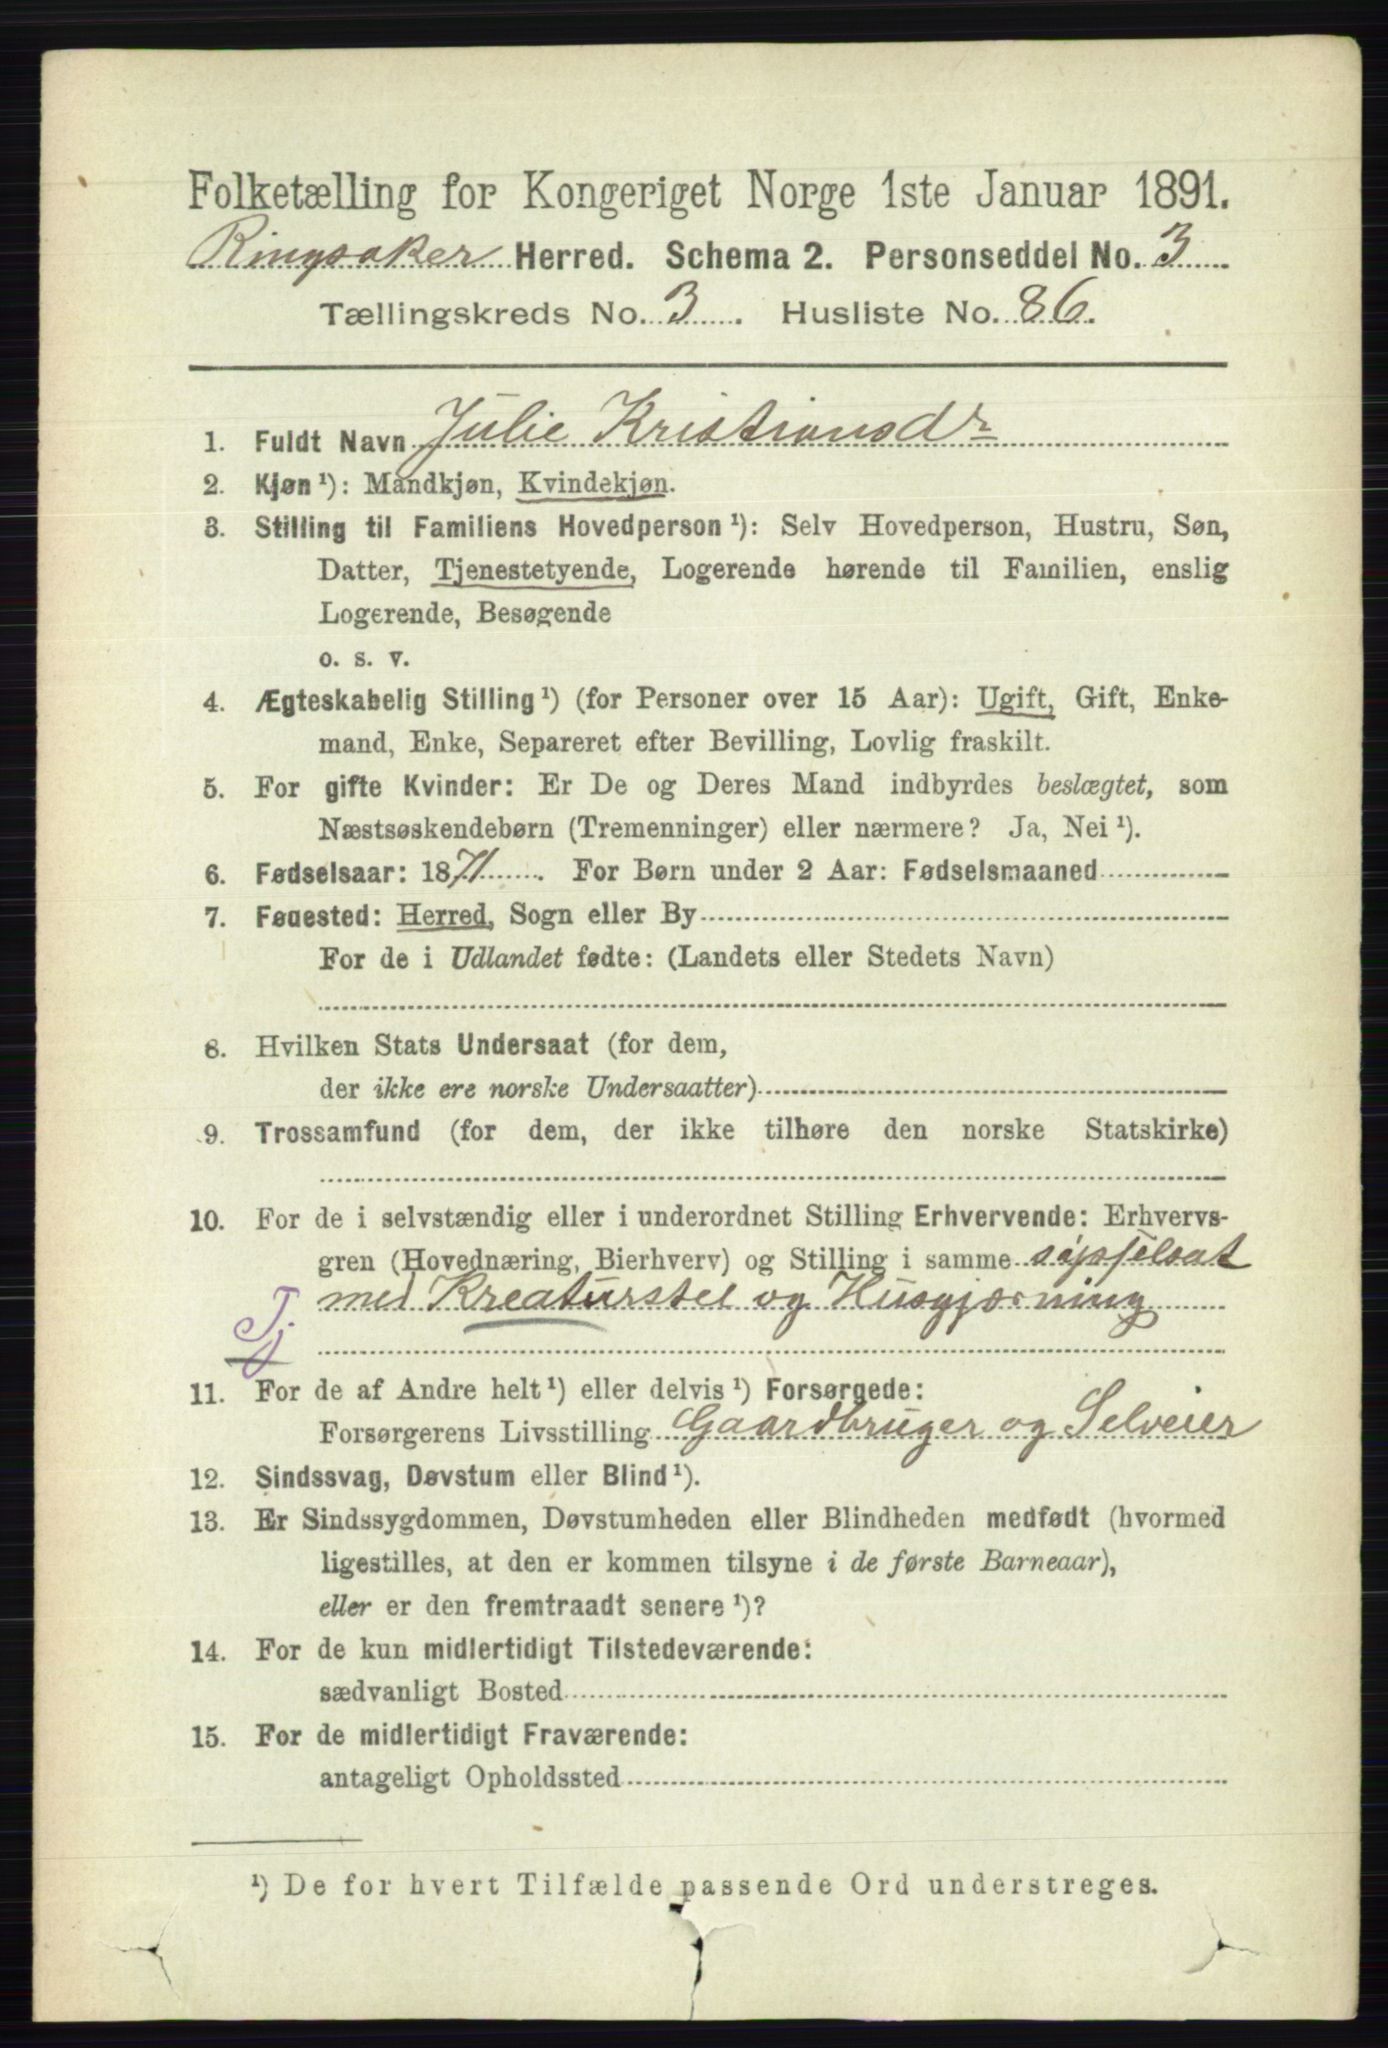 Folketælling for Kongeriget Norge 1ste Januar 1891.
Ringsaker Herred. Schema 2. Personseddel No. 3
Tællingskreds No. 3. Husliste No. 86.
1. Fuldt Navn Julie Kristiansdr
2. Kjøn ¹): Mandkjøn, Kvindekjøn.
3. Stilling til Familiens Hovedperson ¹): Selv Hovedperson, Hustru, Søn,
Datter, Tjenestetyende, Logerende hørende til Familien, enslig
Logerende, Besøgende
o. s. v.
4. Ægteskabelig Stilling ¹) (for Personer over 15 Aar): Ugift, Gift, Enke-
mand, Enke, Separeret efter Bevilling, Lovlig fraskilt.
5. For gifte Kvinder: Er De og Deres Mand indbyrdes beslægtet, som
Næstsøskendebørn (Tremenninger) eller nærmere? Ja, Nei ¹).
6. Fødselsaar: 1871. For Børn under 2 Aar: Fødselsmaaned
7. Fødested: Herred, Sogn eller By
For de i Udlandet fødte: (Landets eller Stedets Navn)
8. Hvilken Stats Undersaat (for dem,
der ikke ere norske Undersaatter)
9. Trossamfund (for dem, der ikke tilhøre den norske Statskirke)
10. For de i selvstændig eller i underordnet Stilling Erhvervende: Erhvervs-
gren (Hovednæring, Bierhverv) og Stilling i samme sysselsat
med Kreaturstel og Husgjærning
Tj.
11. For de af Andre helt ¹) eller delvis ¹) Forsørgede:
Forsørgerens Livsstilling Gaardbruger og Selveier
12. Sindssvag, Døvstum eller Blind ¹).
13. Er Sindssygdommen, Døvstumheden eller Blindheden medfødt (hvormed
ligestilles, at den er kommen tilsyne i de første Barneaar),
eller er den fremtraadt senere ¹)?
14. For de kun midlertidigt Tilstedeværende:
sædvanligt Bosted
15. For de midlertidigt Fraværende:
antageligt Opholdssted
¹) De for hvert Tilfælde passende Ord understreges.